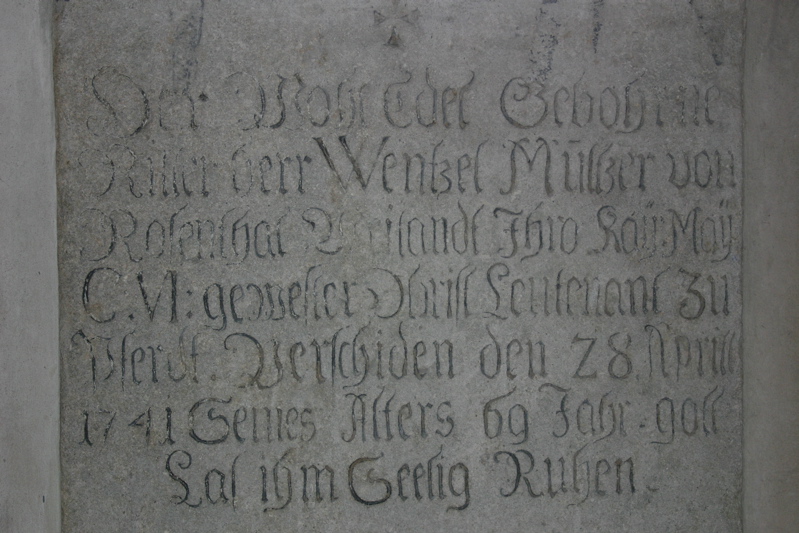 Der Wohl Edel Gebohrne
Ritter herr Wentzel Mültzer von
Rosenthal Weilandt Ihro Kaÿ: Maÿ
C. VI: gewester Obrist Leutenant zu
Pferdt. Verschiden den 28. Aprill
1741 Seines Alters 69 Jahr. gott
Las ihm Seelig Ruhen.